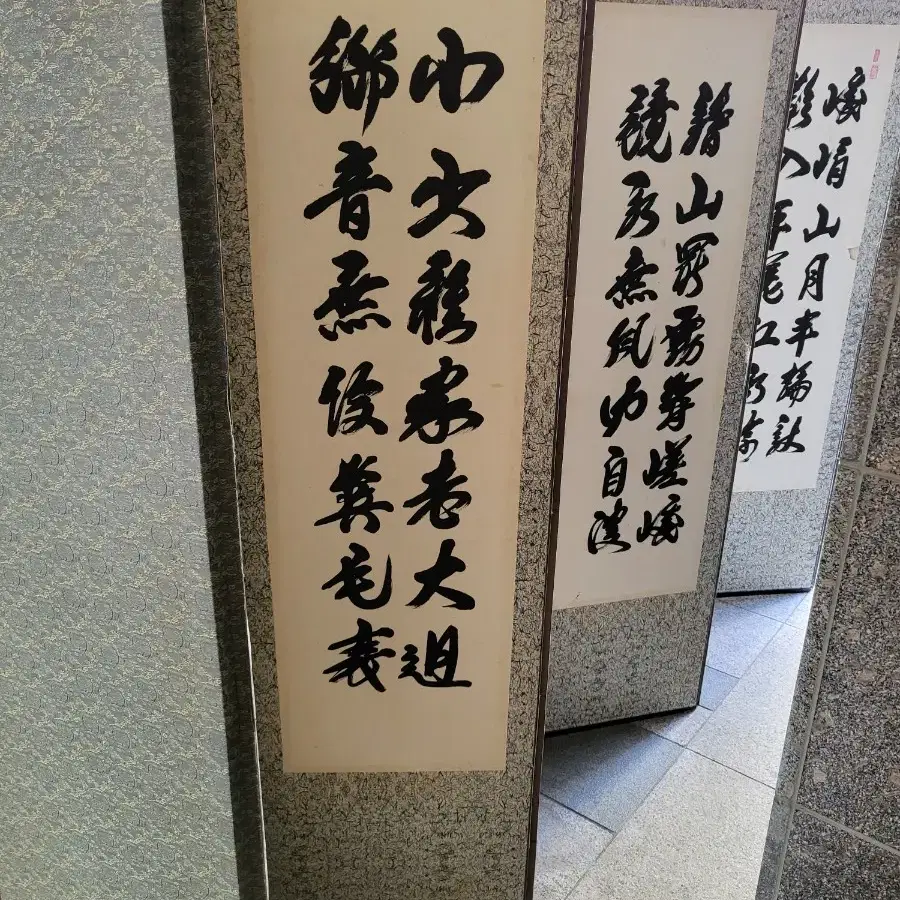 峨嵋山月半輪秋
影入平羌江水流
稽山罷霧鬱嵯峨
鏡水無風也自波
小少離家老大迴
鄉音無改鬢毛衰